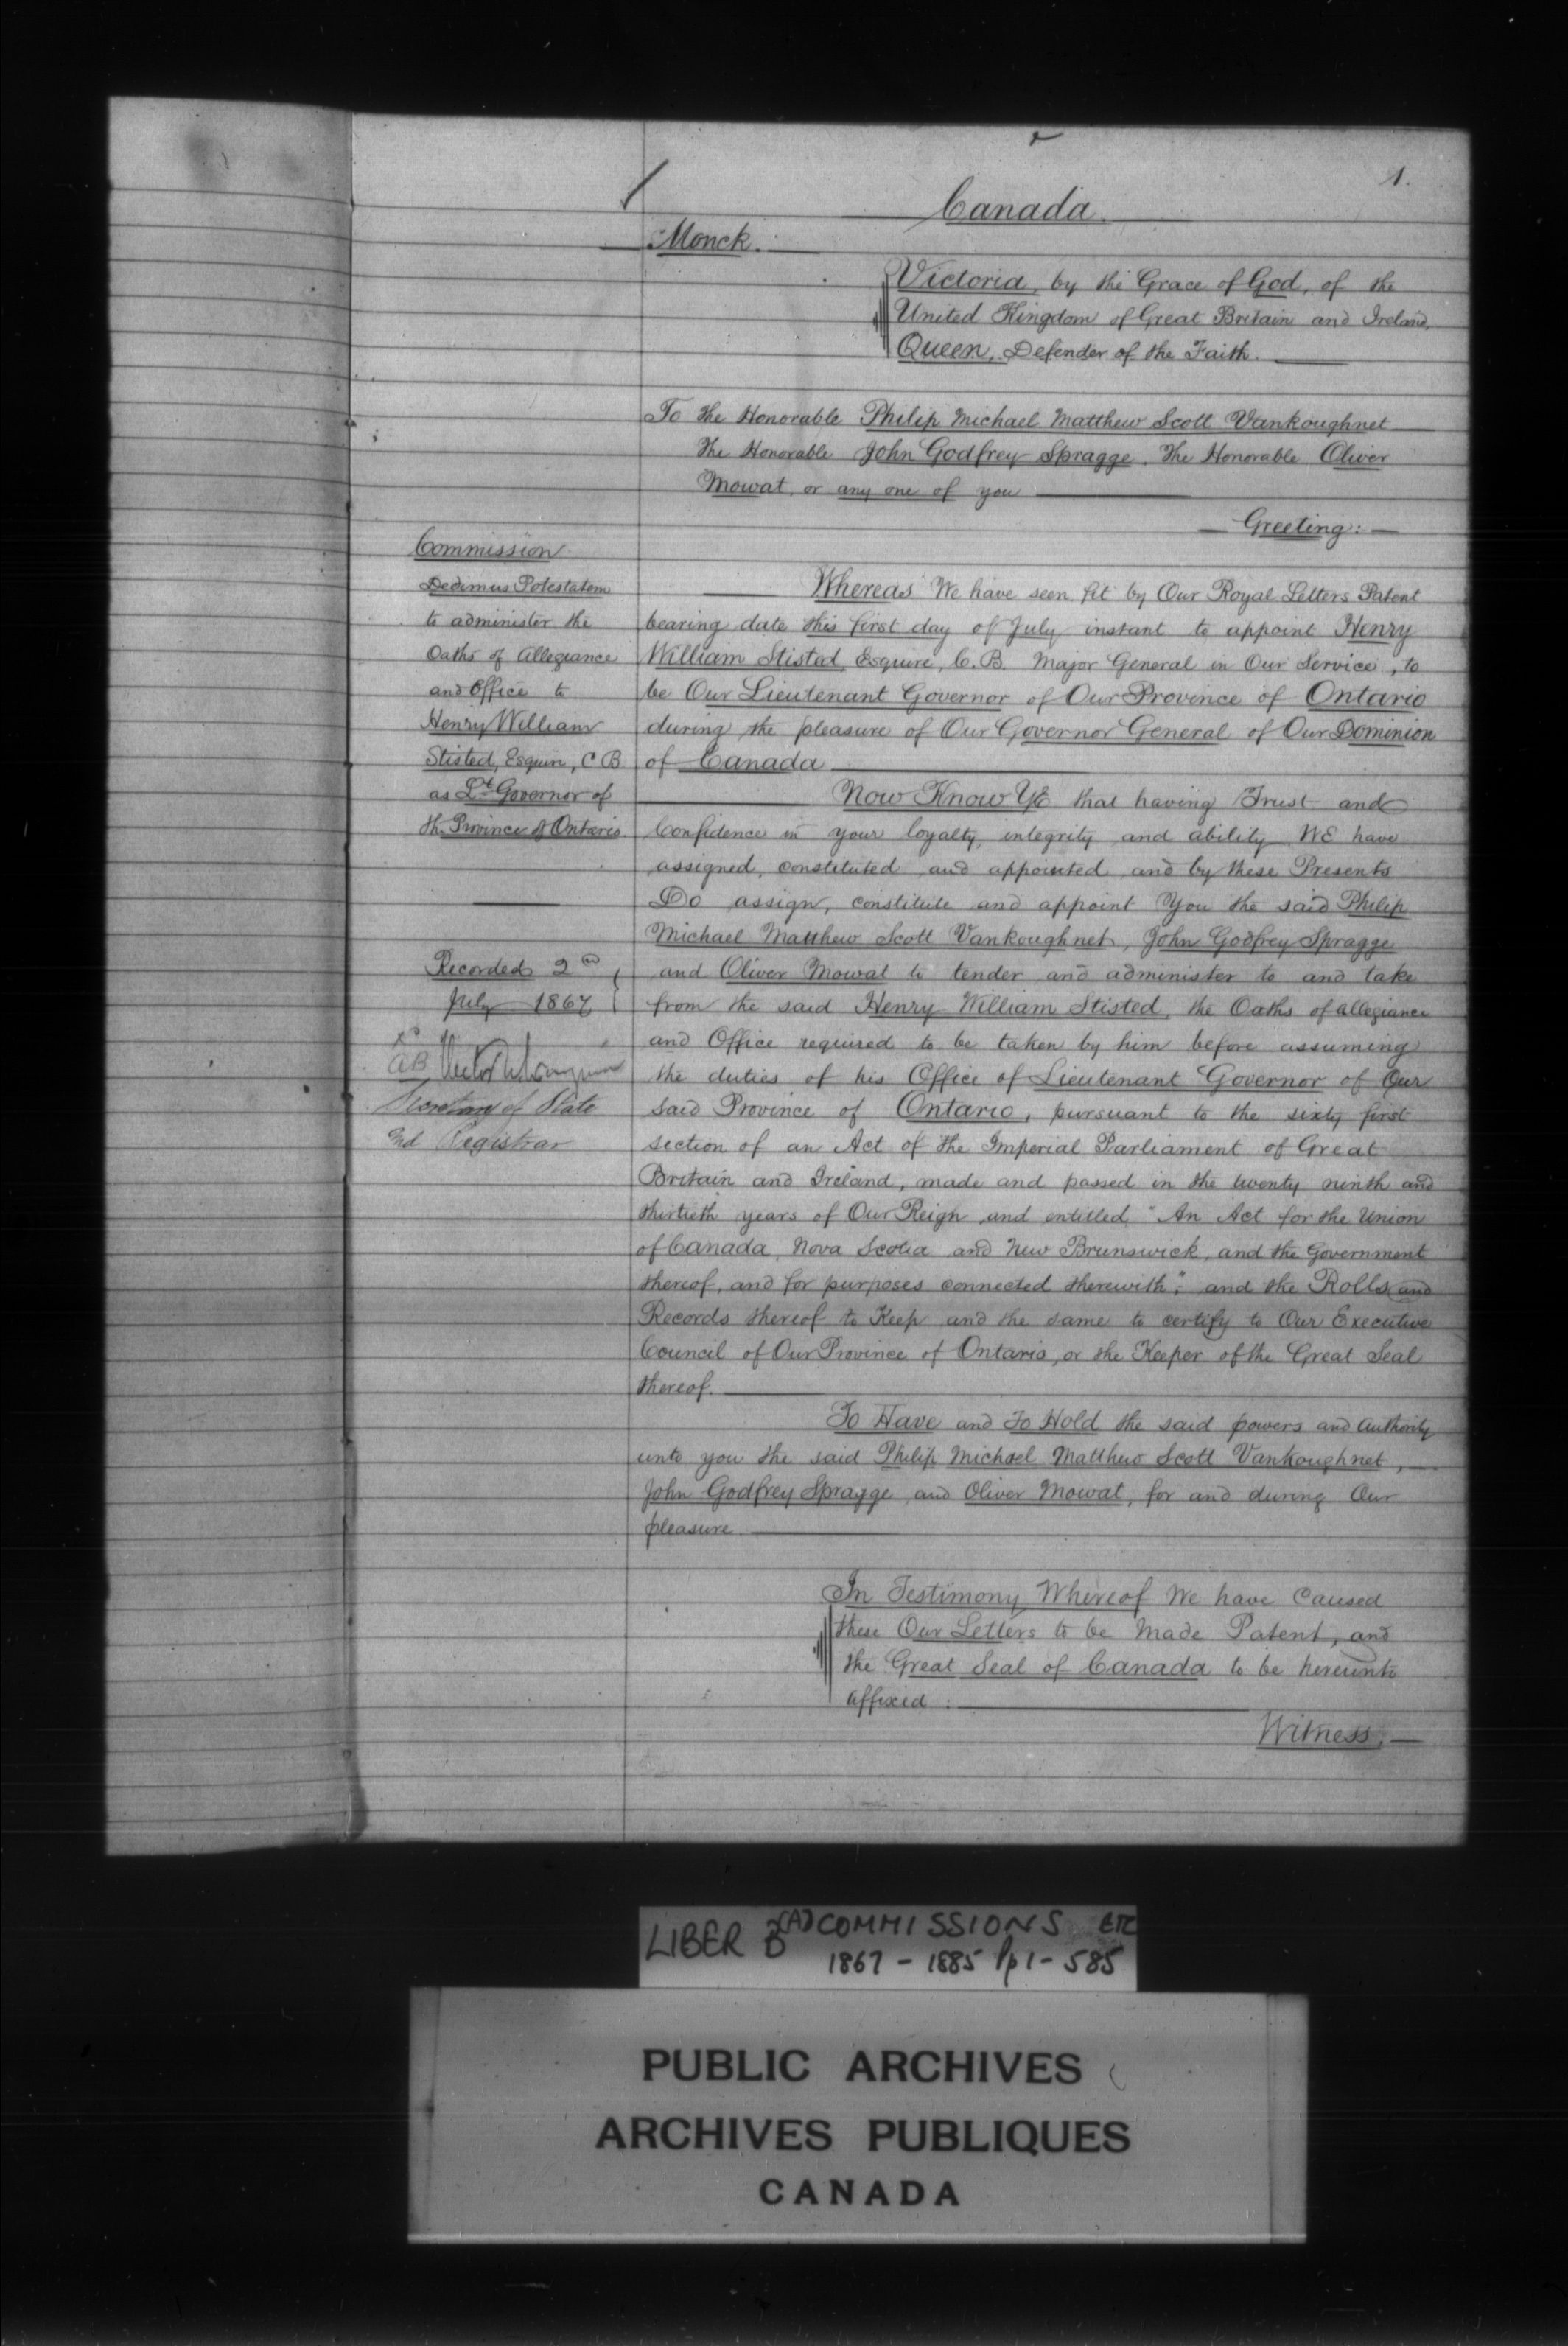 1.
Canada.
Monck.
Victoria, by the Grace of God, of the
United Kingdom of Great Britain and Ireland,
Queen, Defender of the Faith.
To the Honorable Philip Michael Matthew Scott Vankoughnet
the Honorable John Godfrey Spragge, the Honorable Oliver
Mowat, or any one of you
Greeting:
Commission
Dedimus Potestatem
to administer the
Oaths of Allegiance
and Office to
Henry William
Stisted, Esquire, C B
as Lt Governor of
the Province of Ontario
Recorded 2nd
July 1867
AB
Secretary of State
and Registrar
Whereas We have seen fit by Our Royal Letters Patent
bearing date this first day of July instant to appoint Henry
William Stisted, Esquire, C.B. Major General in Our Service, to
be Our Lieutenant Governor of Our Province of Ontario
during the pleasure of Our Governor General of Our Dominion
of Canada
Now Know YE that having Trust and
Confidence in your loyalty, integrity and ability WE have
assigned, constituted and appointed and by these Presents
Do assign, constitute and appoint You the said Philip
Michael Matthew Scott Vankoughnet, John Godfrey Spragge
and Oliver Mowat to tender and administer to and take
from the said Henry William Stisted, the Oaths of Allegiance
and Office required to be taken by him before assuming
the duties of his Office of Lieutenant Governor of Our
said Province of Ontario, pursuant to the sixty first
section of an Act of the Imperial Parliament of Great
Britain and Ireland, made and passed in the twenty ninth and
thirtieth years of Our Reign and entitled "An Act for the Union
of Canada, Nova Scotia and New Brunswick, and the Government
thereof, and for purposes connected therewith"; and the Rolls and
Records thereof to Keep and the same to certify to Our Executive
Council of Our Province of Ontario, or the Keeper of the Great Seal
thereof.
To Have and To Hold the said powers and authority
unto you the said Philip Michael Matthew Scott Vankoughnet,
John Godfrey Spragge and Oliver Mowat, for and during Our
pleasure
In Testimony Whereof We have Caused
these Our Letters to be Made Patent, and
the Great Seal of Canada to be hereunto
affixed:
Witness,
LIBER B (A) COMMISSIONS ETC
1867 - 1885 Pp 1 - 585
PUBLIC ARCHIVES
ARCHIVES PUBLIQUES
CANADA